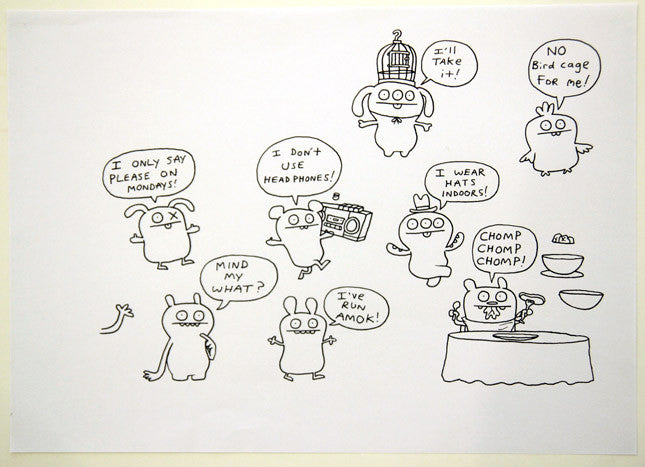 I'll
TAKE
it!
NO
Bird cage
FOR me!
I ONLY SAY
PLEASE ON
MONDAYS!
I DON't
USE
HEADPHONES!
I WEAR
HATS
INDOORS!
CHOMP
CHOMP
CHOMP!
MIND
MY
WHAT?
I'VE
RUN
AMOK!